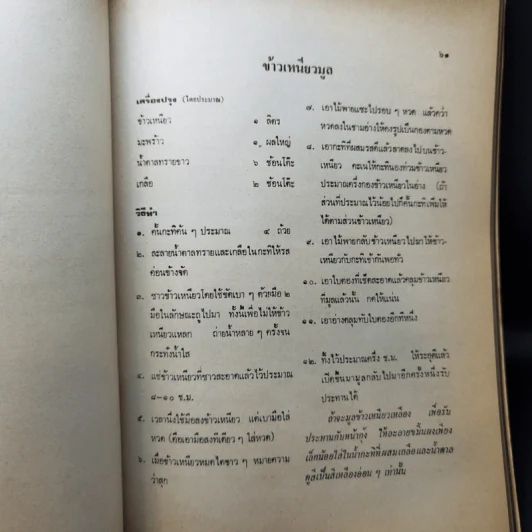 ๖๑
ข้าวเหนียวมูล
เครื่องปรุง (โดยประมาณ)
ข้าวเหนียว ๑ ลิตร
มะพร้าว ๑ ผลใหญ่
น้ำตาลทรายขาว ๖ ช้อนโต๊ะ
เกลือ ๒ ช้อนโต๊ะ
วิธีทำ
๑. คั้นกะทิข้น ๆ ประมาณ ๔ ถ้วย
๒. ละลายน้ำตาลทรายและเกลือในกะทิให้รส
ค่อนข้างจัด
๓. ซาวข้าวเหนียวโดยใช้ขัดเบา ๆ ด้วยมือ ๒
มือในลักษณะถูไปมา ทั้งนี้เพื่อไม่ให้ข้าว
เหนียวแหลก ถ่ายน้ำหลาย ๆ ครั้งจน
กระทั่งน้ำใส
๔. แช่ข้าวเหนียวที่ซาวสะอาดแล้วไว้ประมาณ
๘-๑๐ ช.ม.
๕. เวลานึ่งใช้มือสงข้าวเหนียว แต่เบามือใส่
หวด (คือเอามือสงทีเดียว ๆ ใส่หวด)
๖. เมื่อข้าวเหนียวหมดไตขาว ๆ หมายความ
ว่าสุก
๗. เอาไม้พายแซะไปรอบ ๆ หวด แล้วคว่ำ
หวดลงในชามอ่างให้คงรูปเป็นกองตามหวด
๘. เอากะทิที่ผสมรสดีแล้วลาดลงไปบนข้าว-
เหนียว คะเนให้กะทินองท่วมข้าวเหนียว
ประมาณครึ่งกองข้าวเหนียวในอ่าง (ถ้า
ส่วนที่ประมาณไว้น้อยไปก็คั้นกะทิเพิ่มให้
ได้ตามส่วนข้าวเหนียว)
๙. เอาไม้พายกลับข้าวเหนียวไปมาให้ข้าว-
เหนียวกับกะทิเข้ากันพอทั่ว
๑๐. เอาใบตองที่เช็ดสะอาดแล้วคลุมข้าวเหนียว
ที่มูลแล้วนั้น กดให้แน่น
๑๑. เอาอ่างคลุมทับใบตองอีกทีหนึ่ง
๑๒. ทิ้งไว้ประมาณครึ่ง ช.ม. ให้ระอุดีแล้ว
เปิดขึ้นมามูลกลับไปมาอีกครั้งหนึ่งรับ
ประทานได้
ถ้าจะมูลข้าวเหนียวเหลือง เพื่อรับ
ประทานกับหน้ากุ้ง ให้ละลายขมิ้นผงเพียง
เล็กน้อยใส่ในน้ำกะทิที่ผสมเกลือและน้ำตาล
ดูสีเป็นสีเหลืองอ่อน ๆ เท่านั้น